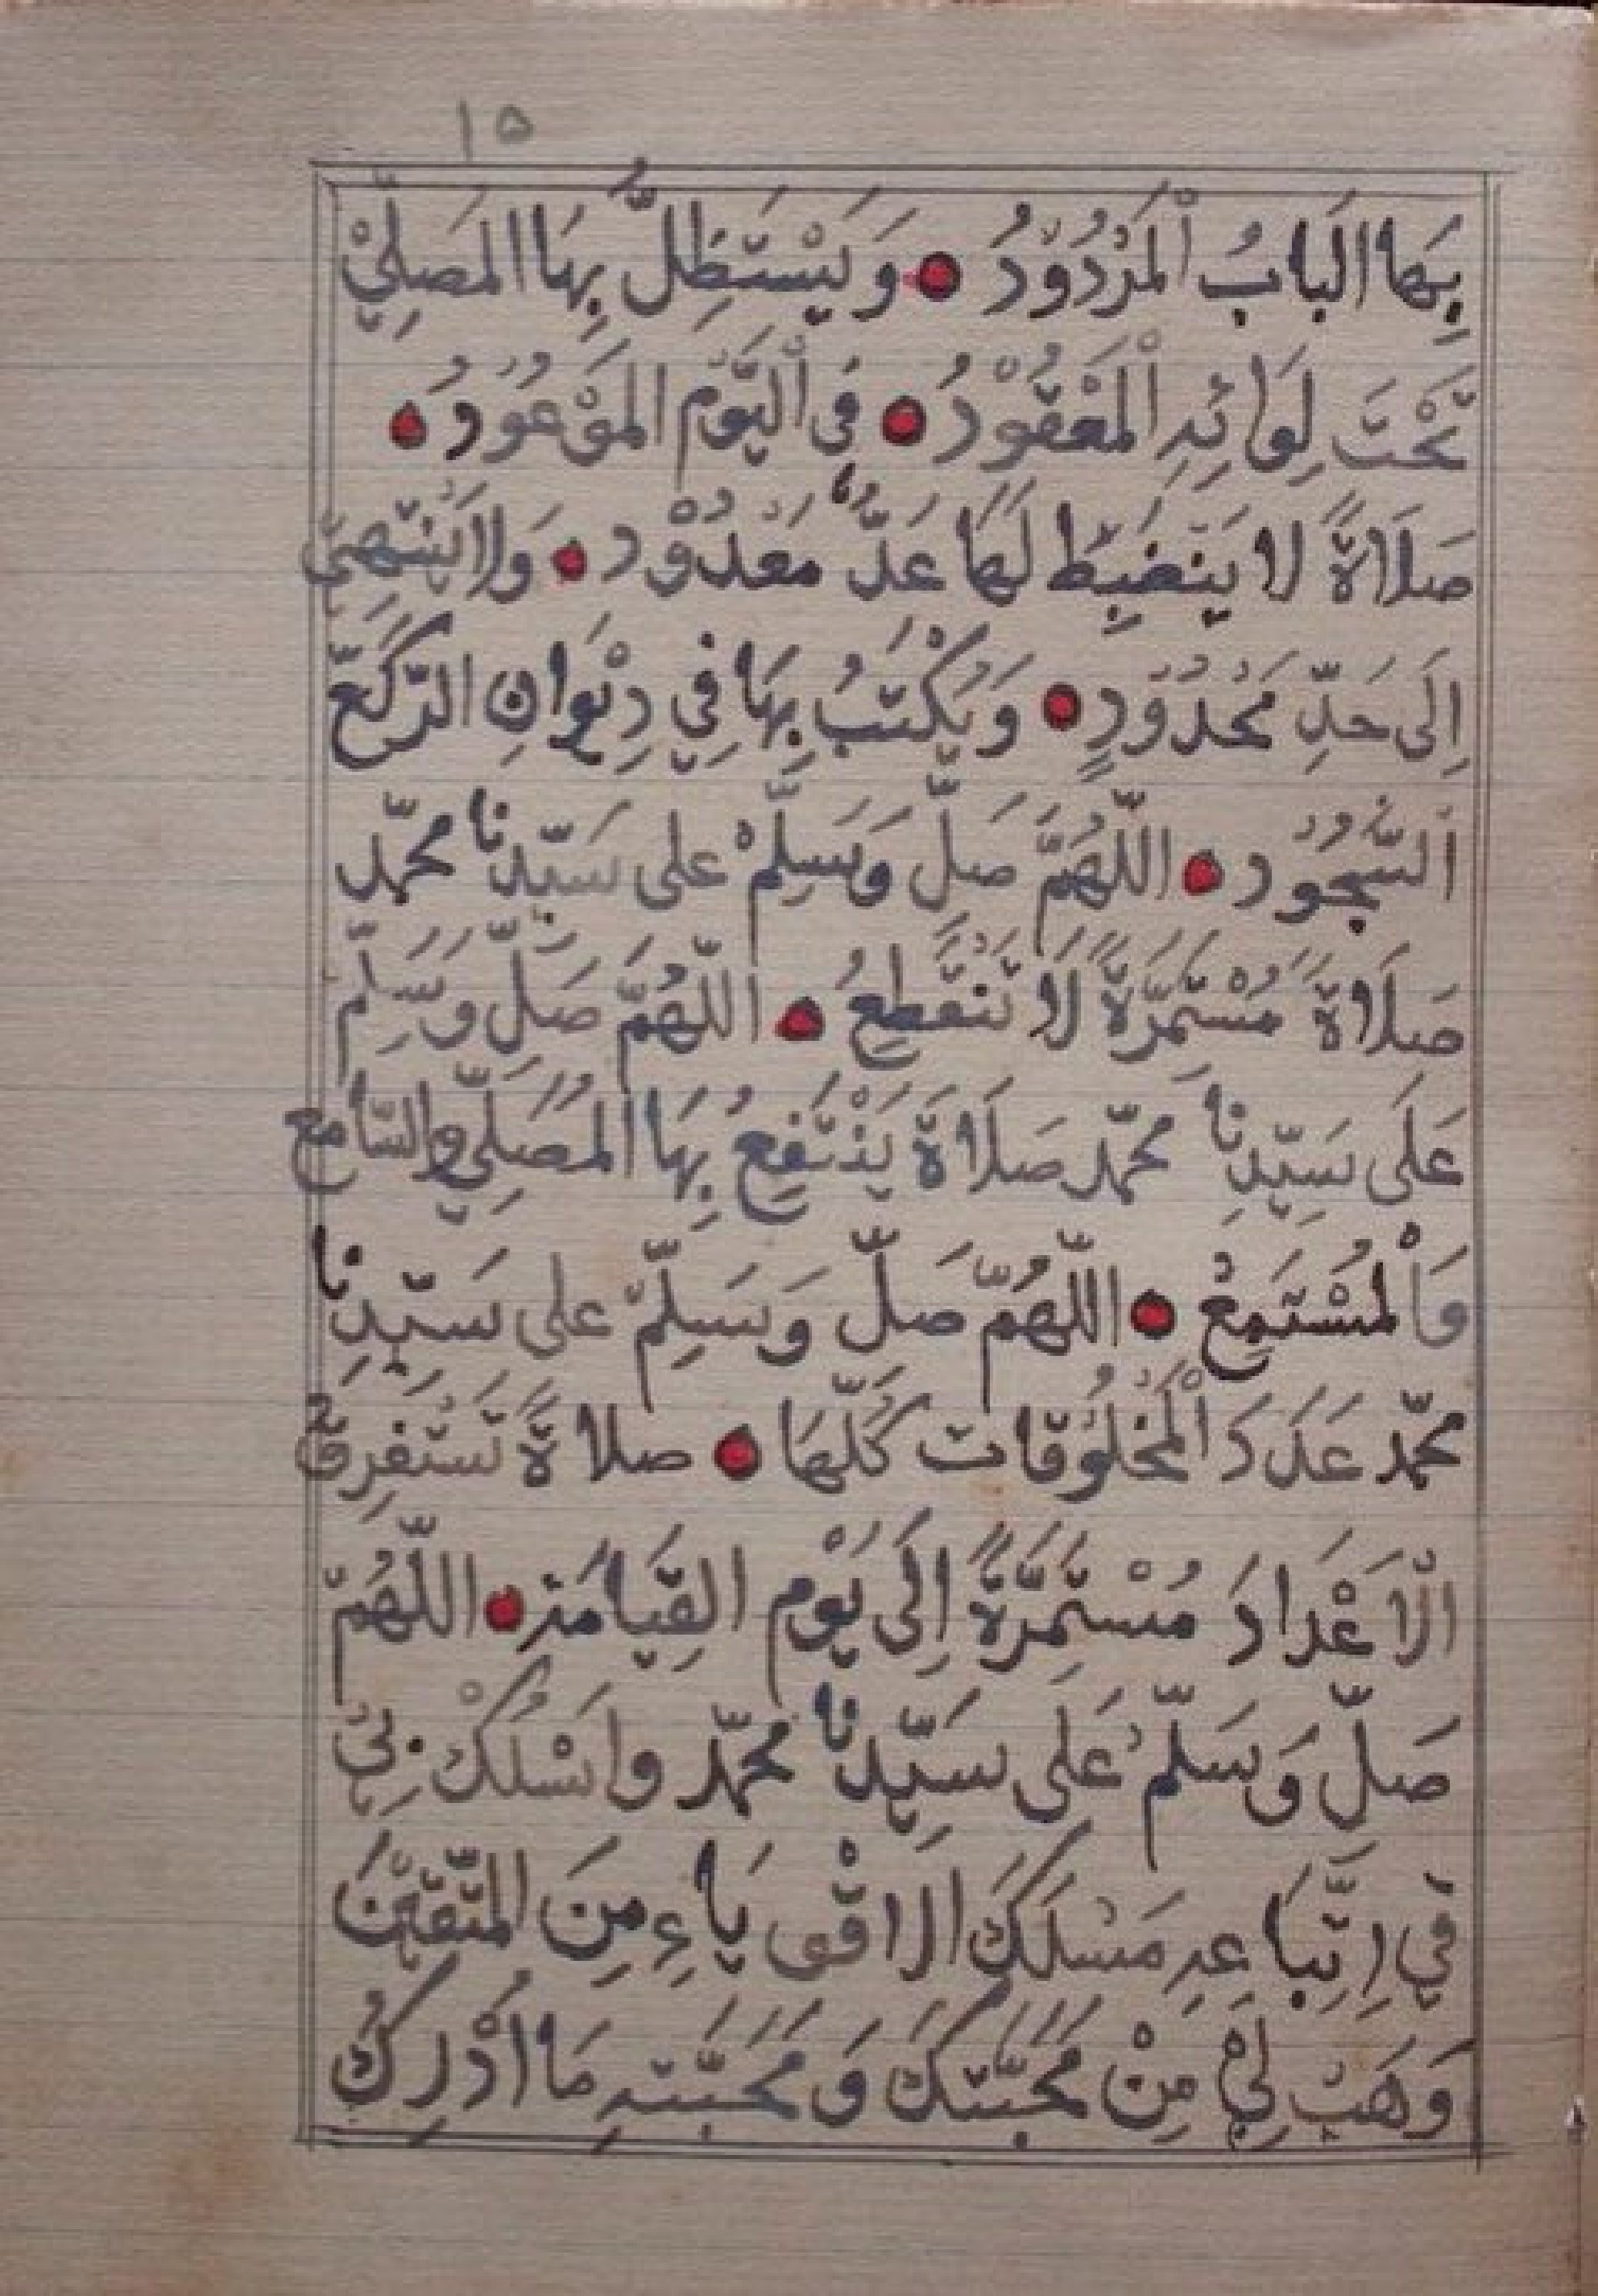 ١٥
بِهَا الَبابُ اْلَمرْدُوْدُ ● وَيَسْتَظِلُّ بِهَا المَصلِّيْ
تَحْتَ لِوَائِدِ اْلمَعْقُوْدُ ● فِى اْليَوْم المَوْعُوْدُ ●
صَلَاةً لا يَنْضَبِطُ لَهَا عَدٌّ مَعْدُوْد ● وَلا اتَنْتَهِىْ
اِلَى حَدِّ مَحْدُوْدٍ ● وَيُكْتَبُ بِهَا فِي دِيْوَانِ الرّكَّعّ
اْلسُّجُوْد ● اللّهُمَّ صَلِّ وَسَلِّمْ على سَيّدِنا محمّد
صَلَاةً مُسْتَمِرَّةً لَا تَنْقَطِعُ ● اللّهُمَّ صَلِّ وَسَلِّمْ
عَلَى سَيّدِنَا محمّد صَلَاةَ يَنْتَفِعُ بِهَا المُصَلِّي والسَّامِع
وَاْلمُسْتَمِعْ ● اللّهُمّ صَلّ وَسَلِّمْ على سَيّدِنا
محمّد عَدَدَ اْلمَخْلُوْقات كُلّهَا ● صلاةً تَسْتَفْرِقُ
اْلاَعْدادَ مُسْتَمِرَّةً اِلَى يَوْم القِيَامَة ● اللّهُمّ
صَلِّ وَسَلّمْ عَلى سَيّدِنا محمّد واسْلُكْ بِيْ
فِي اِتّبَاعِهِ مَسْلَكَ الاَقْوِيَاءِ مِنَ المتّقِيْنَ
وَهَبْ لِيْ مِنْ مَحَبّتِكَ وَمَحَبّتِهِ مَا اُدْرِكُ